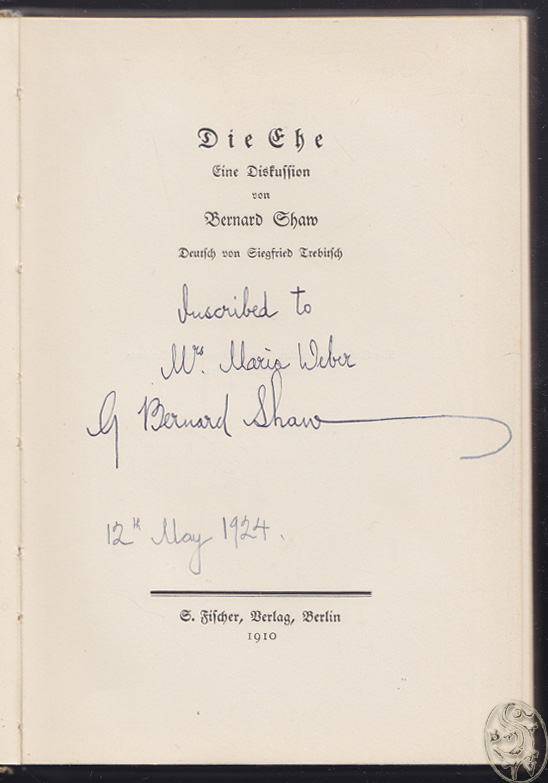 Die Ehe
Eine Diskussion
von
Bernard Shaw
Deutsch von Siegfried Trebitsch
Inscribed to
Mrs. Maria Weber
G Bernard Shaw
12th May 1924.
S. Fischer, Verlag, Berlin
1910